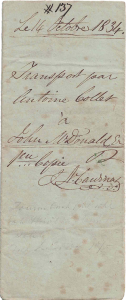 #157
Le 14 Octobre 1834.
Transport par
Antoine Collet
à
John McDonald &
pr Copie